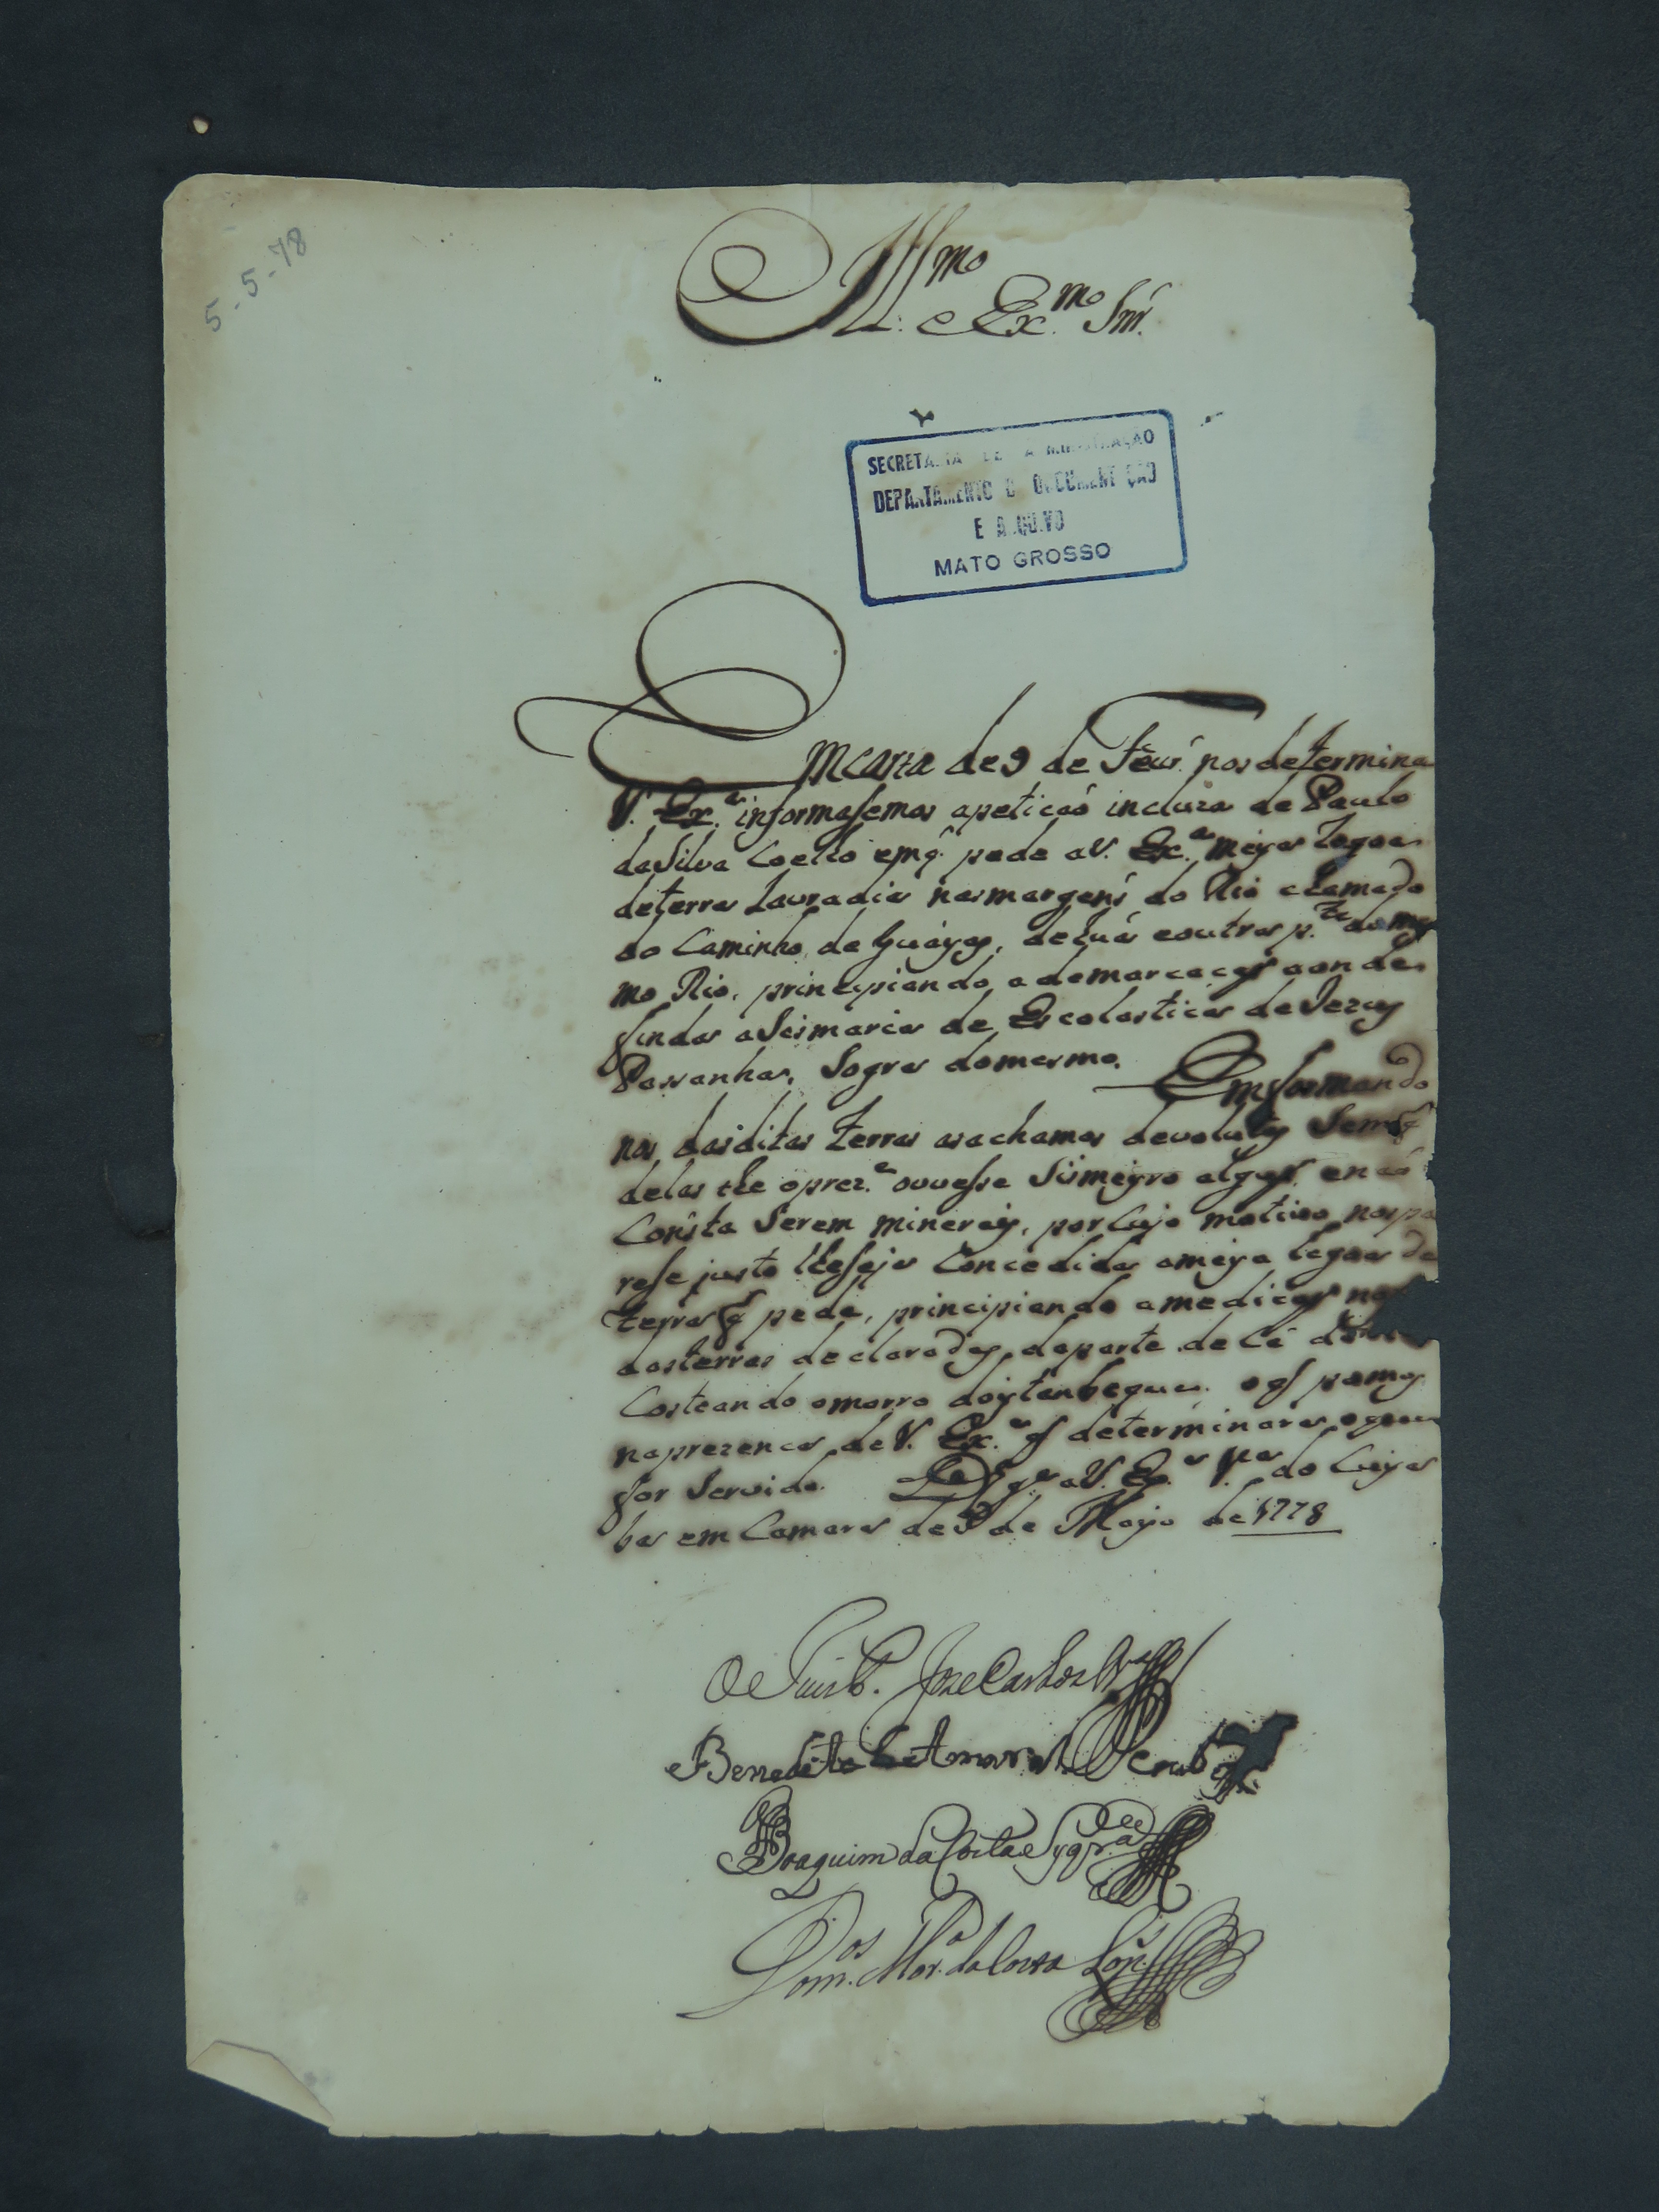 5-5-78
Ill.mo e Ex.mo Snr.
SECRETARIA DE ADMINISTRAÇÃO
DEPARTAMENTO D DOCUMENT ÇÃO
E ARQUIVO
MATO GROSSO
Em carta de 9 de Fevr. nos determina
V. Ex.a informasemos apetição incluza de Paulo
daSilva Coelho emq. pede aV. Ex.a meya legoa
deterra Lavradia nasmargens do Rio chamado
do Caminho de Guayas, dehuá eoutra p.te domes
mo Rio, principiando ademarcação aonde
finda aSesmaria de Escolastica deJezus
Passanha, Sogra domesmo. Emformando
nos dasditas terras asachamos devolutas Semq
delas the oprez.e ouvesse Sismeyro algum enaõ
Consta Serem mineraes, porCujo motivo nospa
rese justo lheseja Concedida ameya legoa de
terras q pede, principiando amedição
dasterras declaradas, daparte de Cá
Costeando omorro doytanbeque. oq pomos
naprezenca deV. Ex.a q determinara oque
for Servido. D.s g.e aV. Ex.a V.a do Cuya
ba em Camara de 5 de Mayo de 1778
O Juis Jozé Carlos
Benedito do Amaral
Joaquim da Costa Syqr.a
Dom.os Mor.a da Costa